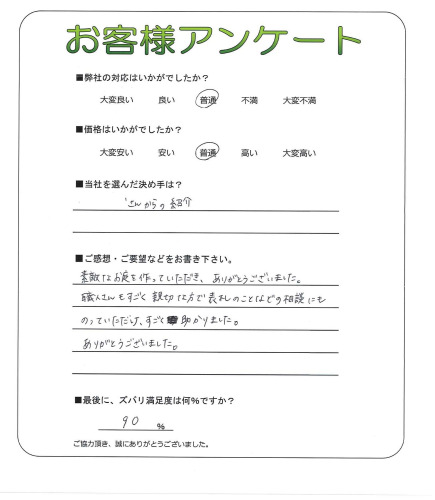 お客様アンケート
■弊社の対応はいかがでしたか？
大変良い 良い 普通 不満 大変不満
■価格はいかがでしたか？
大変安い 安い 普通 高い 大変高い
■当社を選んだ決め手は？
さんからの紹介
■ご感想・ご要望などをお書き下さい。
素敵なお庭を作っていただき、ありがとうございました。
職人さんもすごく親切な方で表札のことなどの相談にも
のっていただけ、すごく助かりました。
ありがとうございました。
■最後に、ズバリ満足度は何％ですか？
90 ％
ご協力頂き、誠にありがとうございました。